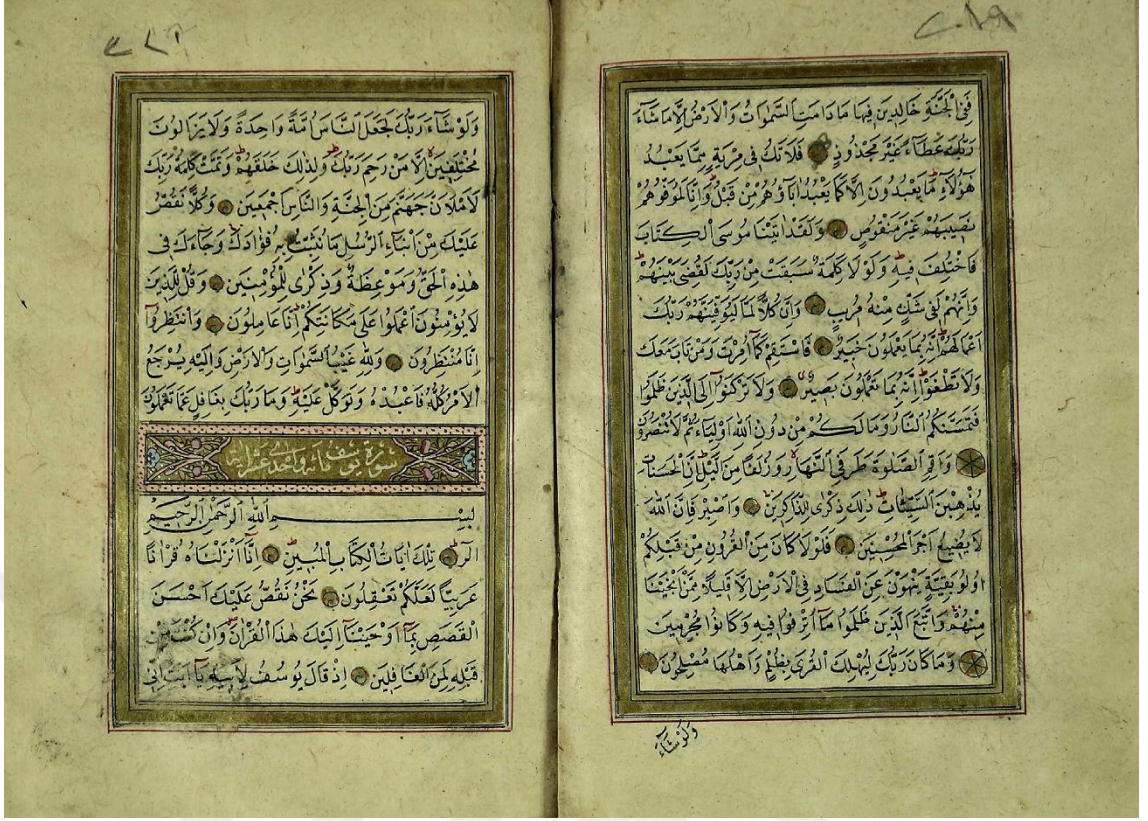 فَفِي الْجَنَّةِ خَالِدِينَ فِيهَا مَا دَامَتِ السَّمٰوَاتُ وَالْاَرْضُ اِلَّا مَا شَٓاءَ
رَبُّكَ عَطَٓاءً غَيْرَ مَجْذُوذٍ فَلَا تَكُ فِي مِرْيَةٍ مِمَّا يَعْبُدُ
هٰٓؤُلَٓاءِ مَا يَعْبُدُونَ اِلَّا كَمَا يَعْبُدُ اٰبَٓاؤُهُمْ مِنْ قَبْلُ وَاِنَّا لَمُوَفُّوهُمْ
نَصِيبَهُمْ غَيْرَ مَنْقُوصٍ وَلَقَدْ اٰتَيْنَا مُوسَى الْكِتَابَ
فَاخْتُلِفَ فِيهِ وَلَوْلَا كَلِمَةٌ سَبَقَتْ مِنْ رَبِّكَ لَقُضِيَ بَيْنَهُمْ
وَاِنَّهُمْ لَفِي شَكٍّ مِنْهُ مُرِيبٍ وَاِنَّ كُلًّا لَمَّا لَيُوَفِّيَنَّهُمْ رَبُّكَ
اَعْمَالَهُمْ اِنَّهُ بِمَا يَعْمَلُونَ خَبِيرٌ فَاسْتَقِمْ كَمَٓا اُمِرْتَ وَمَنْ تَابَ مَعَكَ
وَلَا تَطْغَوْا اِنَّهُ بِمَا تَعْمَلُونَ بَصِيرٌ وَلَا تَرْكَنُٓوا اِلَى الَّذِينَ ظَلَمُوا
فَتَمَسَّكُمُ النَّارُ وَمَا لَكُمْ مِنْ دُونِ اللّٰهِ مِنْ اَوْلِيَٓاءَ ثُمَّ لَا تُنْصَرُونَ
وَاَقِمِ الصَّلٰوةَ طَرَفَيِ النَّهَارِ وَزُلَفًا مِنَ الَّيْلِ اِنَّ الْحَسَنَاتِ
يُذْهِبْنَ السَّيِّـَٔاتِ ذٰلِكَ ذِكْرٰى لِلذَّاكِرِينَ وَاصْبِرْ فَاِنَّ اللّٰهَ
لَا يُضِيعُ اَجْرَ الْمُحْسِنِينَ فَلَوْلَا كَانَ مِنَ الْقُرُونِ مِنْ قَبْلِكُمْ
اُولُوا بَقِيَّةٍ يَنْهَوْنَ عَنِ الْفَسَادِ فِي الْاَرْضِ اِلَّا قَلِيلًا مِمَّنْ اَنْجَيْنَا
مِنْهُمْ وَاتَّبَعَ الَّذِينَ ظَلَمُوا مَٓا اُتْرِفُوا فِيهِ وَكَانُوا مُجْرِمِينَ
وَمَا كَانَ رَبُّكَ لِيُهْلِكَ الْقُرٰى بِظُلْمٍ وَاَهْلُهَا مُصْلِحُونَ
وَلَوْ شَٓاءَ
وَلَوْ شَٓاءَ رَبُّكَ لَجَعَلَ النَّاسَ اُمَّةً وَاحِدَةً وَلَا يَزَالُونَ
مُخْتَلِفِينَ اِلَّا مَنْ رَحِمَ رَبُّكَ وَلِذٰلِكَ خَلَقَهُمْ وَتَمَّتْ كَلِمَةُ رَبِّكَ
لَاَمْلَـَٔنَّ جَهَنَّمَ مِنَ الْجِنَّةِ وَالنَّاسِ اَجْمَعِينَ وَكُلًّا نَقُصُّ
عَلَيْكَ مِنْ اَنْبَٓاءِ الرُّسُلِ مَا نُثَبِّتُ بِهِ فُؤٰادَكَ وَجَٓاءَكَ فِي
هٰذِهِ الْحَقُّ وَمَوْعِظَةٌ وَذِكْرٰى لِلْمُؤْمِنِينَ وَقُلْ لِلَّذِينَ
لَا يُؤْمِنُونَ اعْمَلُوا عَلٰى مَكَانَتِكُمْ اِنَّا عَامِلُونَ وَانْتَظِرُوا
اِنَّا مُنْتَظِرُونَ وَلِلّٰهِ غَيْبُ السَّمٰوَاتِ وَالْاَرْضِ وَاِلَيْهِ يُرْجَعُ
الْاَمْرُ كُلُّهُ فَاعْبُدْهُ وَتَوَكَّلْ عَلَيْهِ وَمَا رَبُّكَ بِغَافِلٍ عَمَّا تَعْمَلُونَ
سورة يوسف مائة واحد عشر آية
بِسْمِ اللّٰهِ الرَّحْمٰنِ الرَّحِيمِ
الٓرٰ تِلْكَ اٰيَاتُ الْكِتَابِ الْمُبِينِ اِنَّٓا اَنْزَلْنَاهُ قُرْاٰنًا
عَرَبِيًّا لَعَلَّكُمْ تَعْقِلُونَ نَحْنُ نَقُصُّ عَلَيْكَ اَحْسَنَ
الْقَصَصِ بِمَٓا اَوْحَيْنَٓا اِلَيْكَ هٰذَا الْقُرْاٰنَ وَاِنْ كُنْتَ مِنْ
قَبْلِهِ لَمِنَ الْغَافِلِينَ اِذْ قَالَ يُوسُفُ لِاَبِيهِ يَٓا اَبَتِ اِنِّي